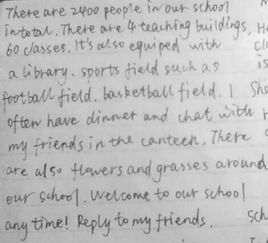 There are 2400 people in our school
in total. There are 4 teaching buildings,
60 classes. It's also equiped with
a library. sports field such as
football field. basketball field. I
often have dinner and chat with
my friends in the canteen. There
are also flowers and grasses around
our school. Welcome to our school
any time! Reply to my friends.